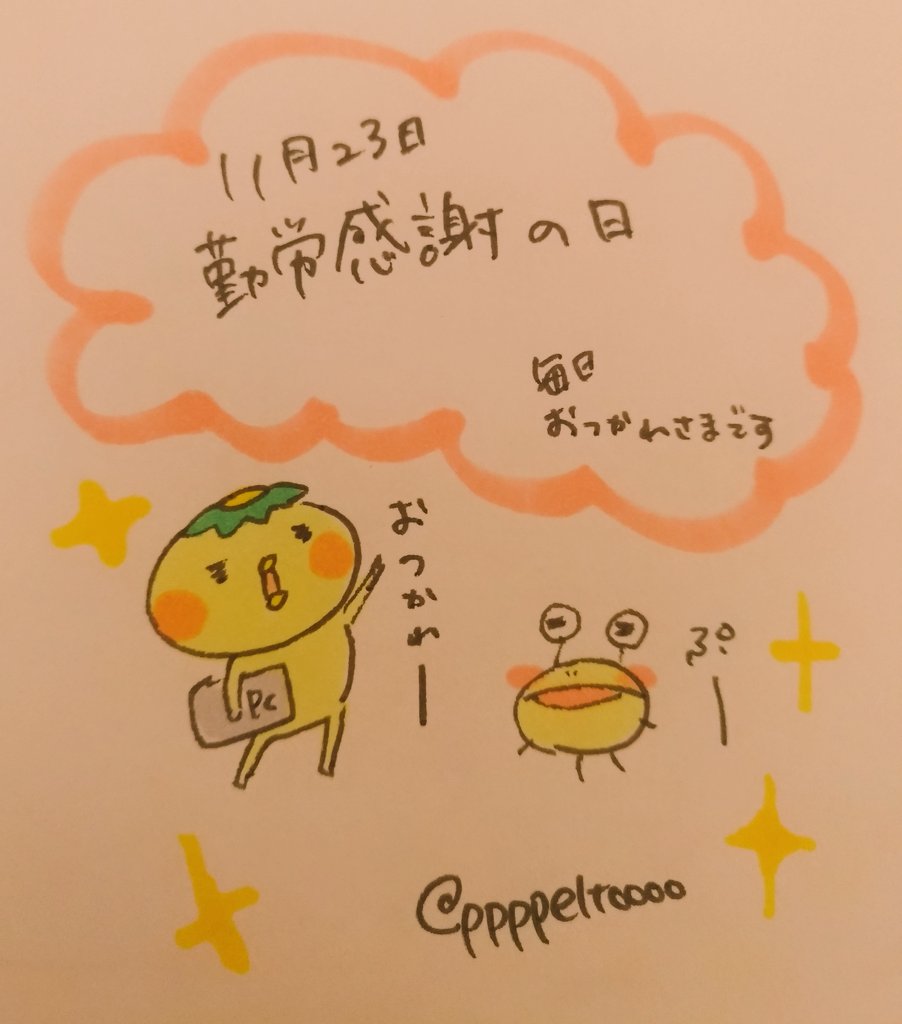 11月23日
勤労感謝の日
毎日
おつかれさまです
おつかれー
ぷー
PC
@ppppeltoooo